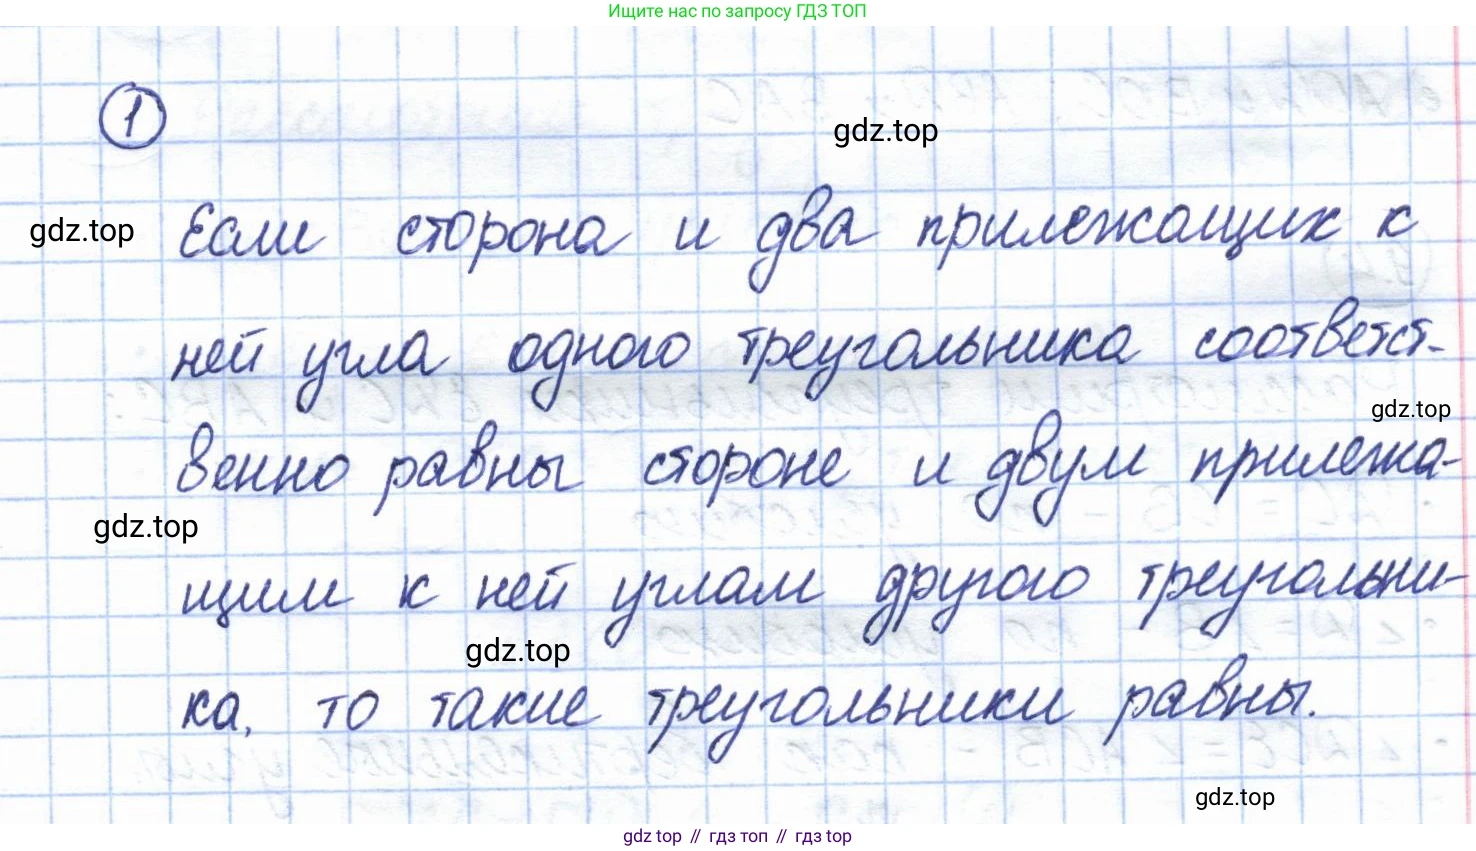 Ищите нас по запросу ГДЗ ТОП
1
gdz.top
gdz.top
Если сторона и два прилежащих к
ней угла одного треугольника соответст-
gdz.top
венно равны стороне и двум прилежа-
gdz.top
щим к ней углам другого треугольни-
gdz.top
ка, то такие треугольники равны.
gdz.top
gdz top // гдз топ // гдз top